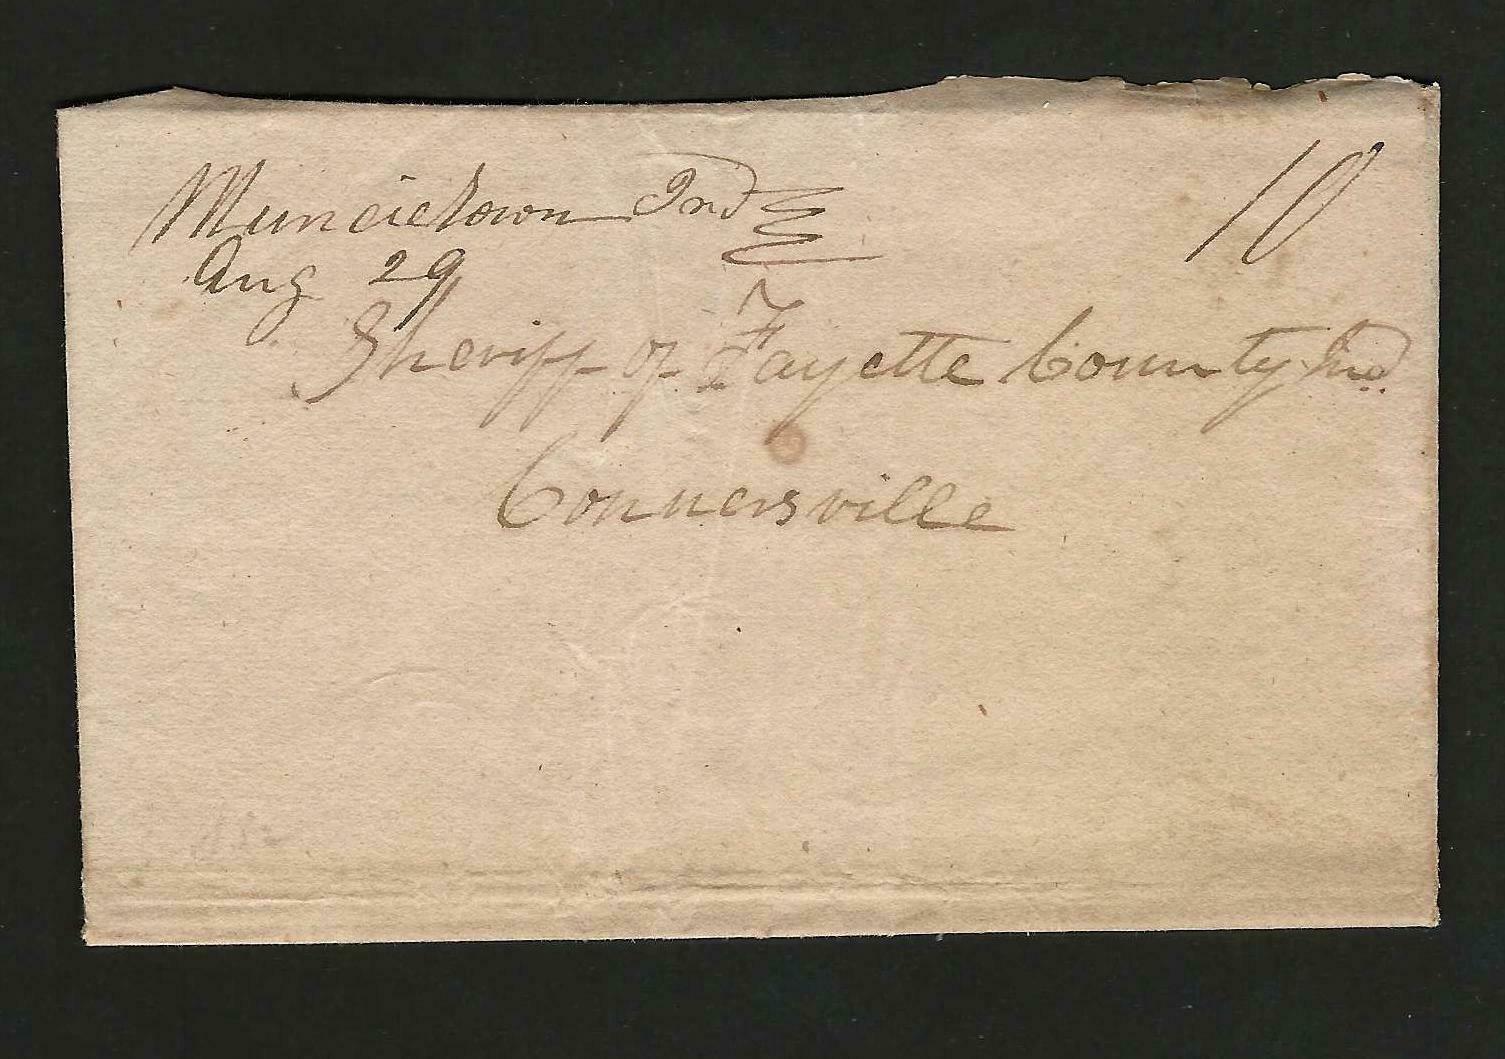 Muncietown Ind
10
Aug 29
Sheriff of Fayette County Ind.
Connersville